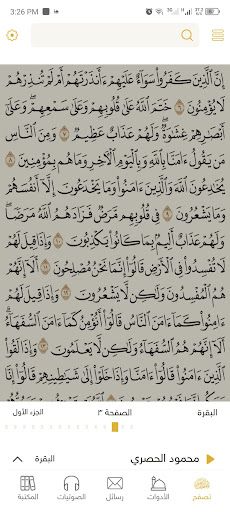 3:26 PM
إِنَّ الَّذِينَ كَفَرُوا سَوَاءٌ عَلَيْهِمْ أَأَنذَرْتَهُمْ أَمْ لَمْ تُنذِرْهُمْ
لَا يُؤْمِنُونَ ٦ خَتَمَ اللَّهُ عَلَىٰ قُلُوبِهِمْ وَعَلَىٰ سَمْعِهِمْ وَعَلَىٰ
أَبْصَارِهِمْ غِشَاوَةٌ وَلَهُمْ عَذَابٌ عَظِيمٌ ٧ وَمِنَ النَّاسِ
مَن يَقُولُ آمَنَّا بِاللَّهِ وَبِالْيَوْمِ الْآخِرِ وَمَا هُم بِمُؤْمِنِينَ ٨
يُخَادِعُونَ اللَّهَ وَالَّذِينَ آمَنُوا وَمَا يَخْدَعُونَ إِلَّا أَنفُسَهُمْ
وَمَا يَشْعُرُونَ ٩ فِي قُلُوبِهِم مَّرَضٌ فَزَادَهُمُ اللَّهُ مَرَضًا
وَلَهُمْ عَذَابٌ أَلِيمٌ بِمَا كَانُوا يَكْذِبُونَ ١٠ وَإِذَا قِيلَ لَهُمْ
لَا تُفْسِدُوا فِي الْأَرْضِ قَالُوا إِنَّمَا نَحْنُ مُصْلِحُونَ ١١ أَلَا إِنَّهُمْ
هُمُ الْمُفْسِدُونَ وَلَٰكِن لَّا يَشْعُرُونَ ١٢ وَإِذَا قِيلَ لَهُمْ
آمِنُوا كَمَا آمَنَ النَّاسُ قَالُوا أَنُؤْمِنُ كَمَا آمَنَ السُّفَهَاءُ
أَلَا إِنَّهُمْ هُمُ السُّفَهَاءُ وَلَٰكِن لَّا يَعْلَمُونَ ١٣ وَإِذَا لَقُوا
الَّذِينَ آمَنُوا قَالُوا آمَنَّا وَإِذَا خَلَوْا إِلَىٰ شَيَاطِينِهِمْ قَالُوا
البقرة الصفحة ٣ الجزء الأول
محمود الحصري البقرة
تصفح الأدوات رسائل الصوتيات المكتبة